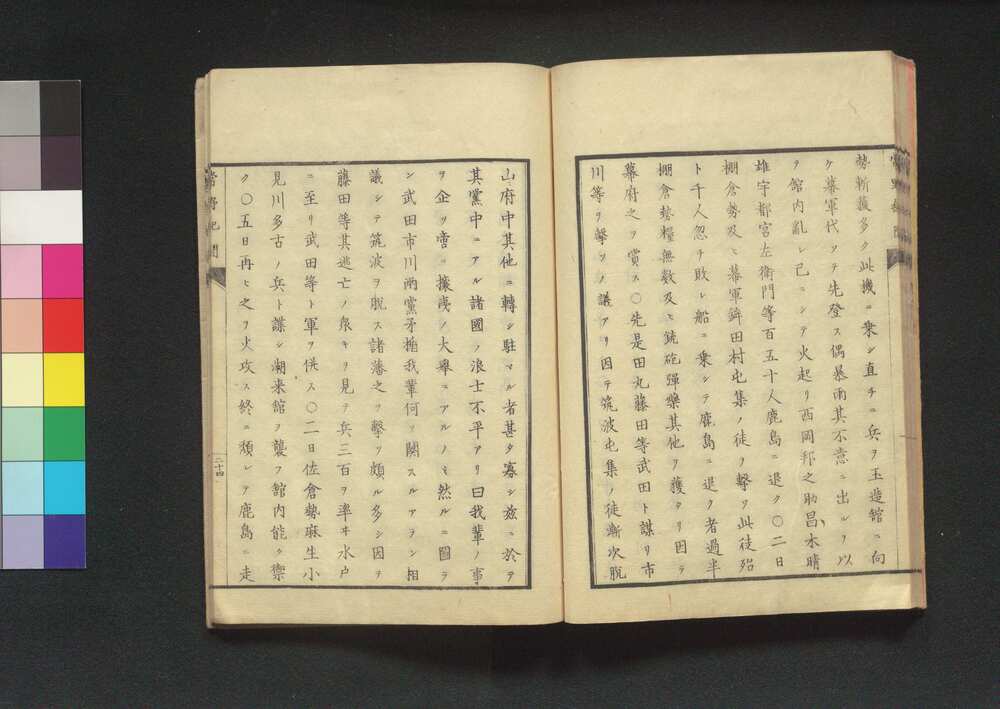 勢斬獲多ク此機ニ乗シ直チニ兵ヲ玉造館ニ向
ケ幕軍代ツテ先登ス偶暴雨其不意ニ出ルヲ以
テ館内亂レ已ニシテ火起リ西岡邦之助昌木晴
雄宇都宮左衛門等百五十人鹿島ニ退ク〇二日
棚倉勢及ヒ幕軍鉾田村屯集ノ徒ヲ撃ツ此徒殆
ト千人忽チ敗レ船ニ乗シテ鹿島ニ退ク者過半
棚倉勢糧無数及ヒ銃砲彈藥其他ヲ獲タリ因テ
幕府之ヲ賞ス〇先是田丸藤田等武田ト謀リ市
川等ヲ撃ツノ議アリ因テ筑波屯集ノ徒漸次脱
山府中其他ニ轉シ駐マル者甚タ寡シ玆ニ於テ
其黨中ニアル諸國ノ浪士不平アリ曰我輩ノ事
ヲ企ツ啻ニ攘夷ノ大擧ニアルノミ然ルニ圖ラ
ン武田市川兩黨矛楯我輩何ソ關スルアラン相
議シテ筑波ヲ脱ス諸藩之ヲ撃ツ頗ル多シ因テ
藤田等其逃亡ノ衆キヲ見テ兵三百ヲ率ヰ水戸
ニ至リ武田等ト軍ヲ併ス〇二日佐倉勢麻生小
見川多古ノ兵ト謀シ潮来館ヲ襲フ館内能ク禦
ク〇五日再ヒ之ヲ火攻ス終ニ頽レテ鹿島ニ走
二十四